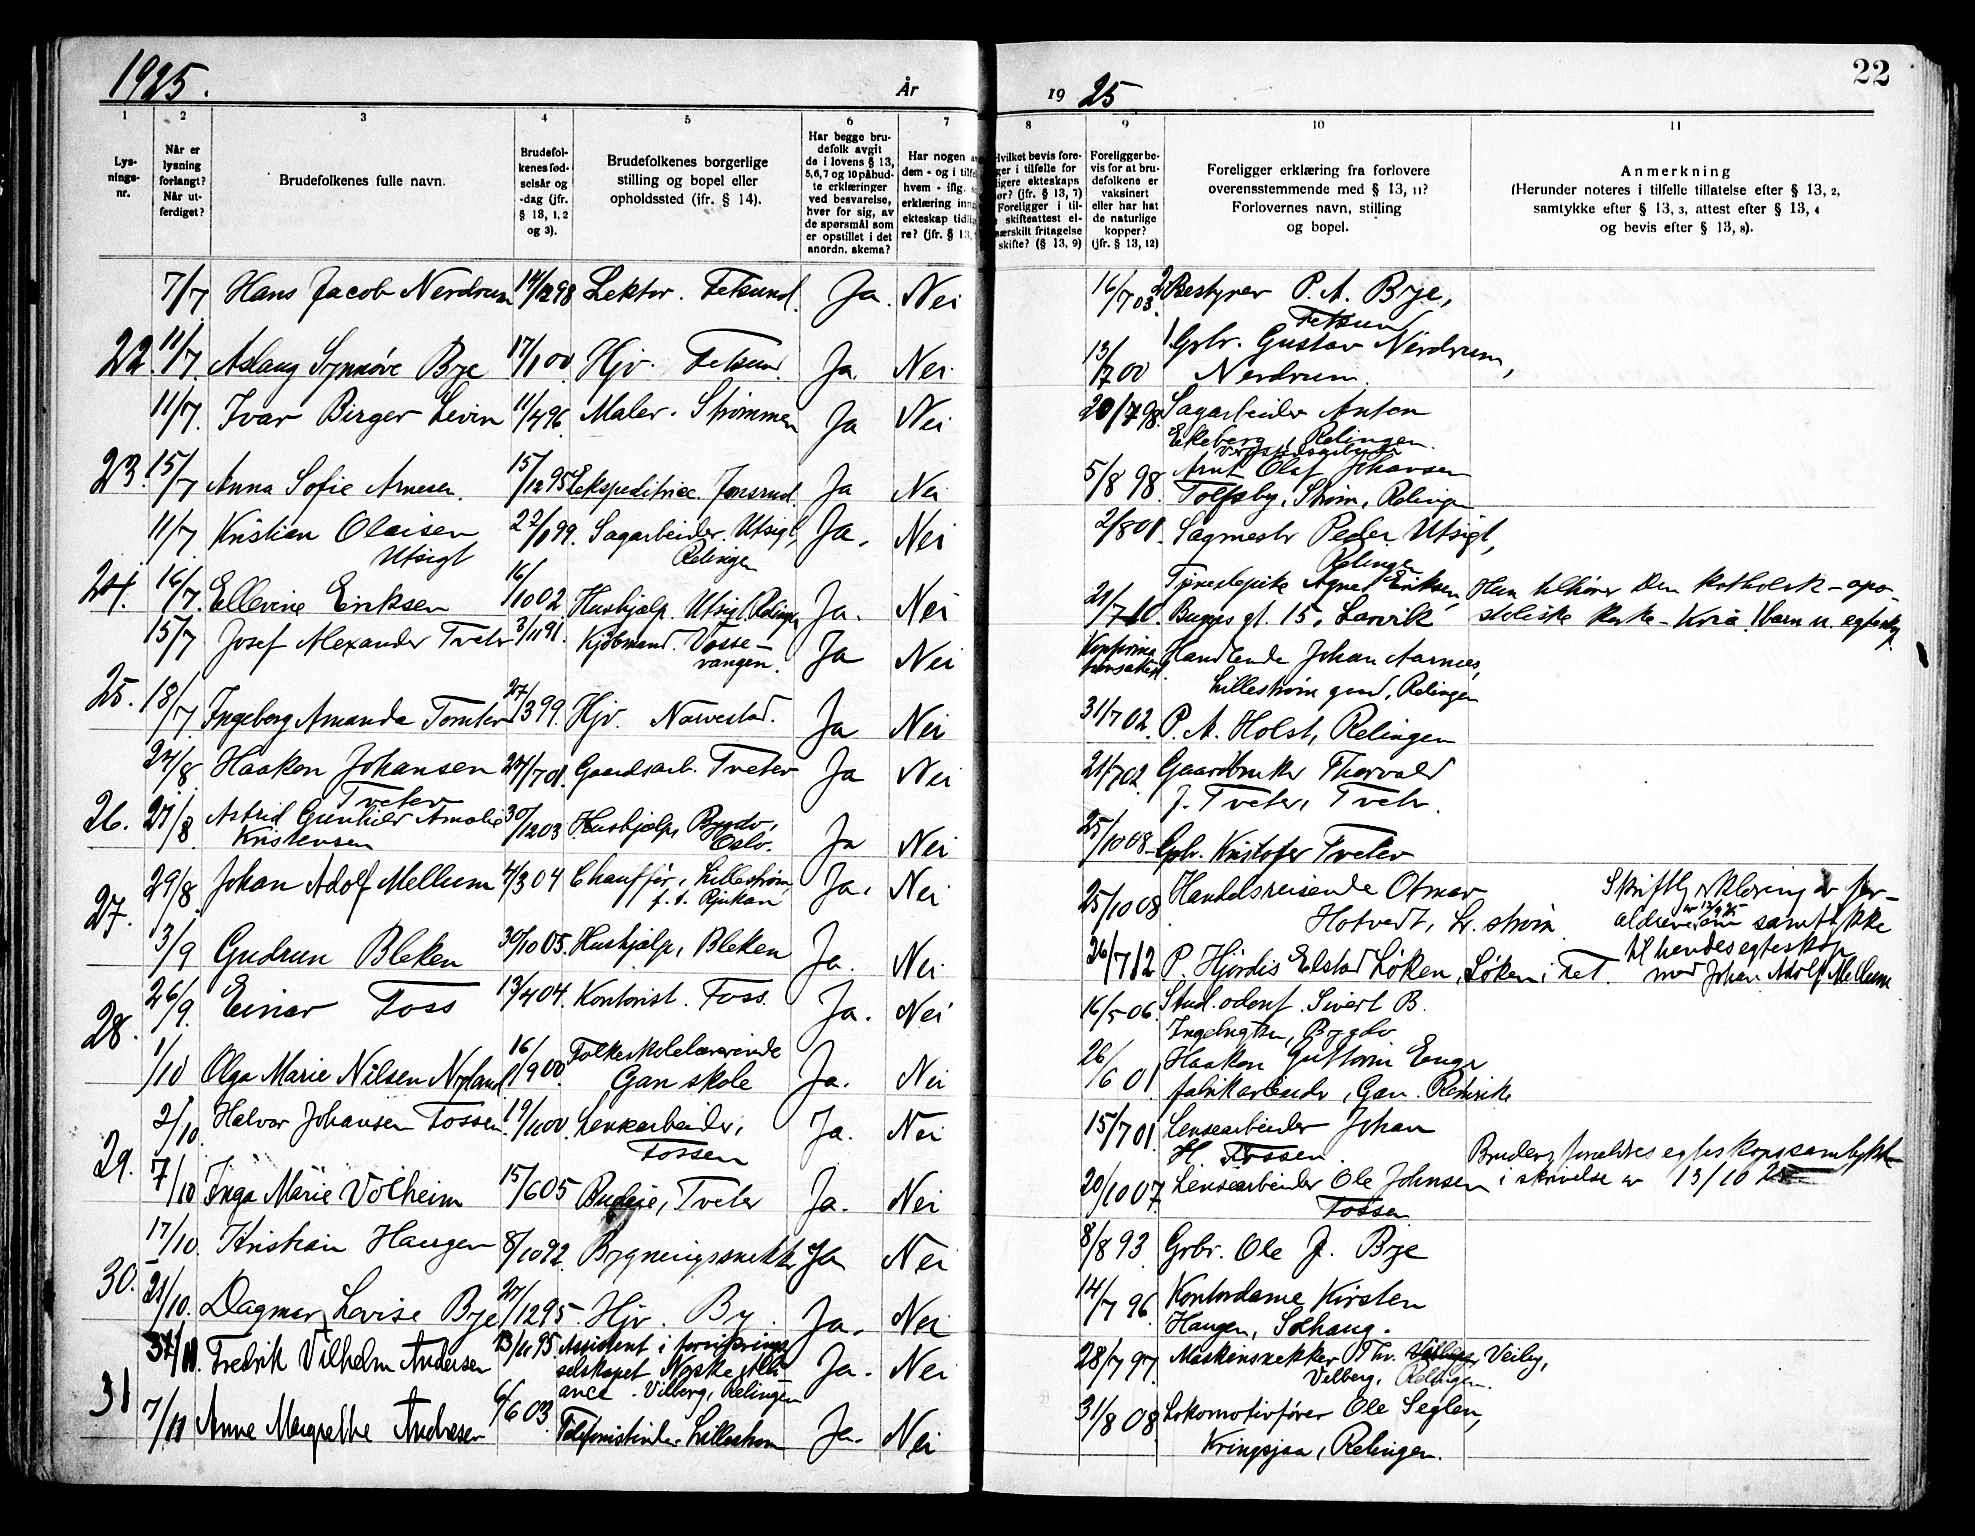 1925.
År
19 25
22
1
2
3
4
5
6
7
8
9
10
11
Lys-
nings-
nr.
Når er
lysning
forlangt?
Når ut-
ferdiget?
Brudefolkenes fulle navn.
Brudefol-
kenes fød-
selsår og
-dag (jfr.
§ 13, 1, 2
og 3).
Brudefolkenes borgerlige
stilling og bopel eller
opholdssted (jfr. § 14).
Har begge bru-
defolk avgit
de i lovens § 13,
5, 6, 7 og 10 påbud-
te erklæringer
ved besvarelse,
hver for sig, av
de spørsmål som
er opstillet i det
anordn. skema?
Har nogen av
dem - og i tilfe
hvem - iflg. s
erklæring inng
ekteskap tidlig
re? (jfr. § 13,
Hvilket bevis fore-
ger i tilfelle for
ligere ekteskaps
or? (jfr. § 13, 7)
Foreligger i til-
skifteattest el-
særskilt fritagelse
skifte? (§ 13, 9)
Foreligger be-
vis for at bru-
defolkene er
vaksinert
eller har hat
de naturlige
kopper?
(jfr. § 13, 12)
Foreligger erklæring fra forlovere
overensstemmende med § 13, 11?
Forlovernes navn, stilling
og bopel.
Anmerkning
(Herunder noteres i tilfelle tillatelse efter § 13, 2,
samtykke efter § 13, 3, attest efter § 13, 4
og bevis efter § 13, 8).
7/7 Hans Jacob Nerdrum 14/12 98 Lektor. Fetsund. Ja. Nei 16/7 03 2 Bestyrer P. A. Bye,
Fetsund
22. 11/7. Aslaug Synnøve Bye 17/1 00. Hjv. Fetsund. Ja. Nei. 13/7 00 1 Gbr. Gustav Nerdrum,
Nerdrum.
11/7. Ivar Birger Levin 11/4 96. Maler. Strømmen Ja Nei 20/7 98. Sagarbeider Anton
Ekeberg, Rælingen.
23. 15/7 Anna Sofie Arnesen. 15/12 95 Ekspeditrice. Ja Nei 5/8 98. Verkstedsarbeider
Arnt Olaf Johansen
Tolfsby, Strøm, Relingen
11/7 Kristian Olaisen 22/1 99. Sagarbeider. Utsigt, Ja. Nei 2/8 01. Sagmestr Peder Utsigt,
Utsigt Relingen Relingen
24. 16/7. Ellevine Eriksen 16/10 02 Hushjælp. Utsigt. Relingen Ja. Nei 21/7 10. Tjenestepike Agnes Eriksen,
Bugges gt. 15, Larvik
Hun tilhører den katholsk-apo-
stoliske kirke - Kria. 1 barn u. egtesk.
15/7 Josef Alexander Tveter 3/11 91. Kjøbmand. Vosse- Ja Nei Konfirma
vangen. tionsattest Handlende Johan Aarnes,
Lillestrøm gaard, Relingen
25. 18/7. Ingeborg Amanda Tomter 27/3 99. Hjv. Navestad. Ja Nei 31/7 02. P. A. Holst, Relingen
24/8 Haakon Johansen 24/7 01. Gaardsarb. Tveter Ja Nei 21/7 02. Gaardbruker Thorvald
Tveter J. Tveter, Tveter.
26. 27/8. Astrid Gunhild Amalie 30/12 03 Hushjælp, Bygdø, Ja Nei 25/10 08 Gbr. Kristofer Tveter
Kristensen Oslo.
27. 29/8. Johan Adolf Mellum 4/3 04 Chauffør, Lillestrøm, Ja. Nei 25/10 08 Handelsreisende Otmar
f. t. Rjukan Hotvedt, L. strøm
Skriftlig erklæring av for-
ældrene om samtykke
av 12/9 25
til hendes egteskap
med Johan Adolf Mellum
3/9 Gudrun Bleken 30/10 05 Hushjælp, Bleken Ja. Nei 26/7 12 P. Hjørdis Elstad Løken, Løken i Fet.
28. 26/9. Einar Foss 13/4 04. Kontorist. Foss. Ja. Nei 16/5 06. Stud. odont. Sivert B.
Ingebrigtsen, Bygdø
1/10 Olga Marie Nilsen Nyland 16/9 00. Folkeskolelærerinde Ja. Nei 26/6 01 Haakon Guttorm Enger
Gan skole fabrikarbeider, Gan.
2/10. Halvor Johansen Fossen. 19/1 00. Lensearbeider, Ja. Nei 15/7 01. Lensearbeider Johan
Fossen H. Fossen.
29. 7/10 Inga Marie Volheim 15/6 05 Budeie, Tveter Ja. Nei 20/10 07 Lensearbeider Ole Johnsen
Fossen
Brudens forældres egteskapssamtykke
i skrivelse av 13/10 25
17/10. Kristian Haugen 8/10 92. Bygningssnekker Ja Nei 8/8 93 Grbr. Ole J. Bye
30. 21/10. Dagmar Lovise Bye 27/12 95. Hjv. By. Ja. Nei 14/7 96. Kontordame Kirsten
Haugen, Solhaug.
31/10. Fredrik Vilhelm Andersen 13/11 95. Assistent i forsikrings- Ja. Nei 28/7 97. Maskinsnekker Thv. Veiby,
selskapet Norske Alli- Vilberg, Relingen.
ance. Vilberg, Relingen
31 7/11 Anne Margrethe Andresen 6/6 03 Telefonistinde. Lillestrøm Ja. Nei 31/8 08 Lokomotivfører Ole Seglen,
Kringsjaa, Relingen.